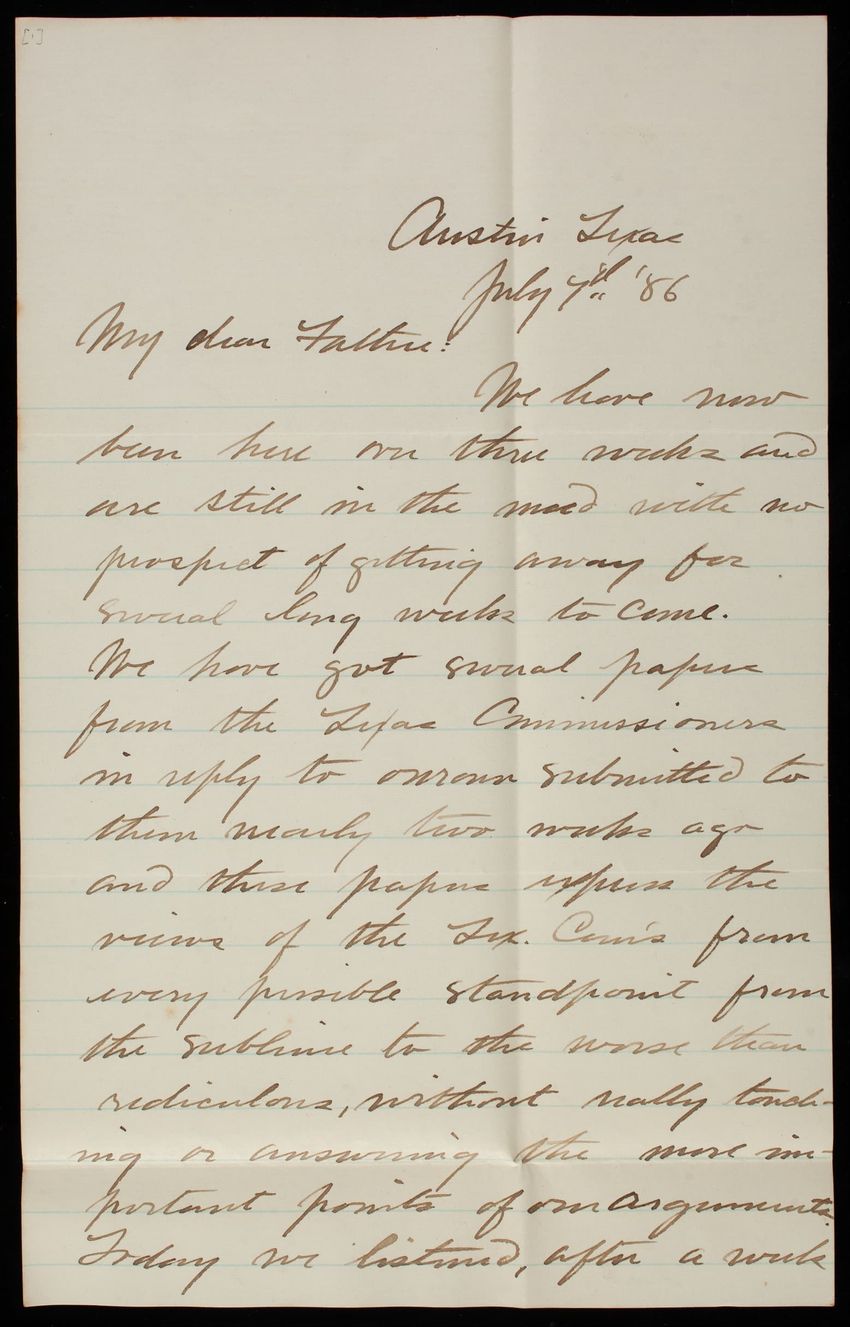 [1]
Austin Texas
July 7th '86
My dear Father:
We have now
been here over three weeks and
are still in the mud with no
prospect of getting away for
several long weeks to come.
We have got several papers
from the Texas Commissioners
in reply to our own submitted to
them nearly two weeks ago
and these papers express the
views of the Tex. Com's from
every possible standpoint from
the sublime to the worse than
rediculous, without really touch-
ing or answering the more im-
portant points of our arguments.
Today we listened, after a week